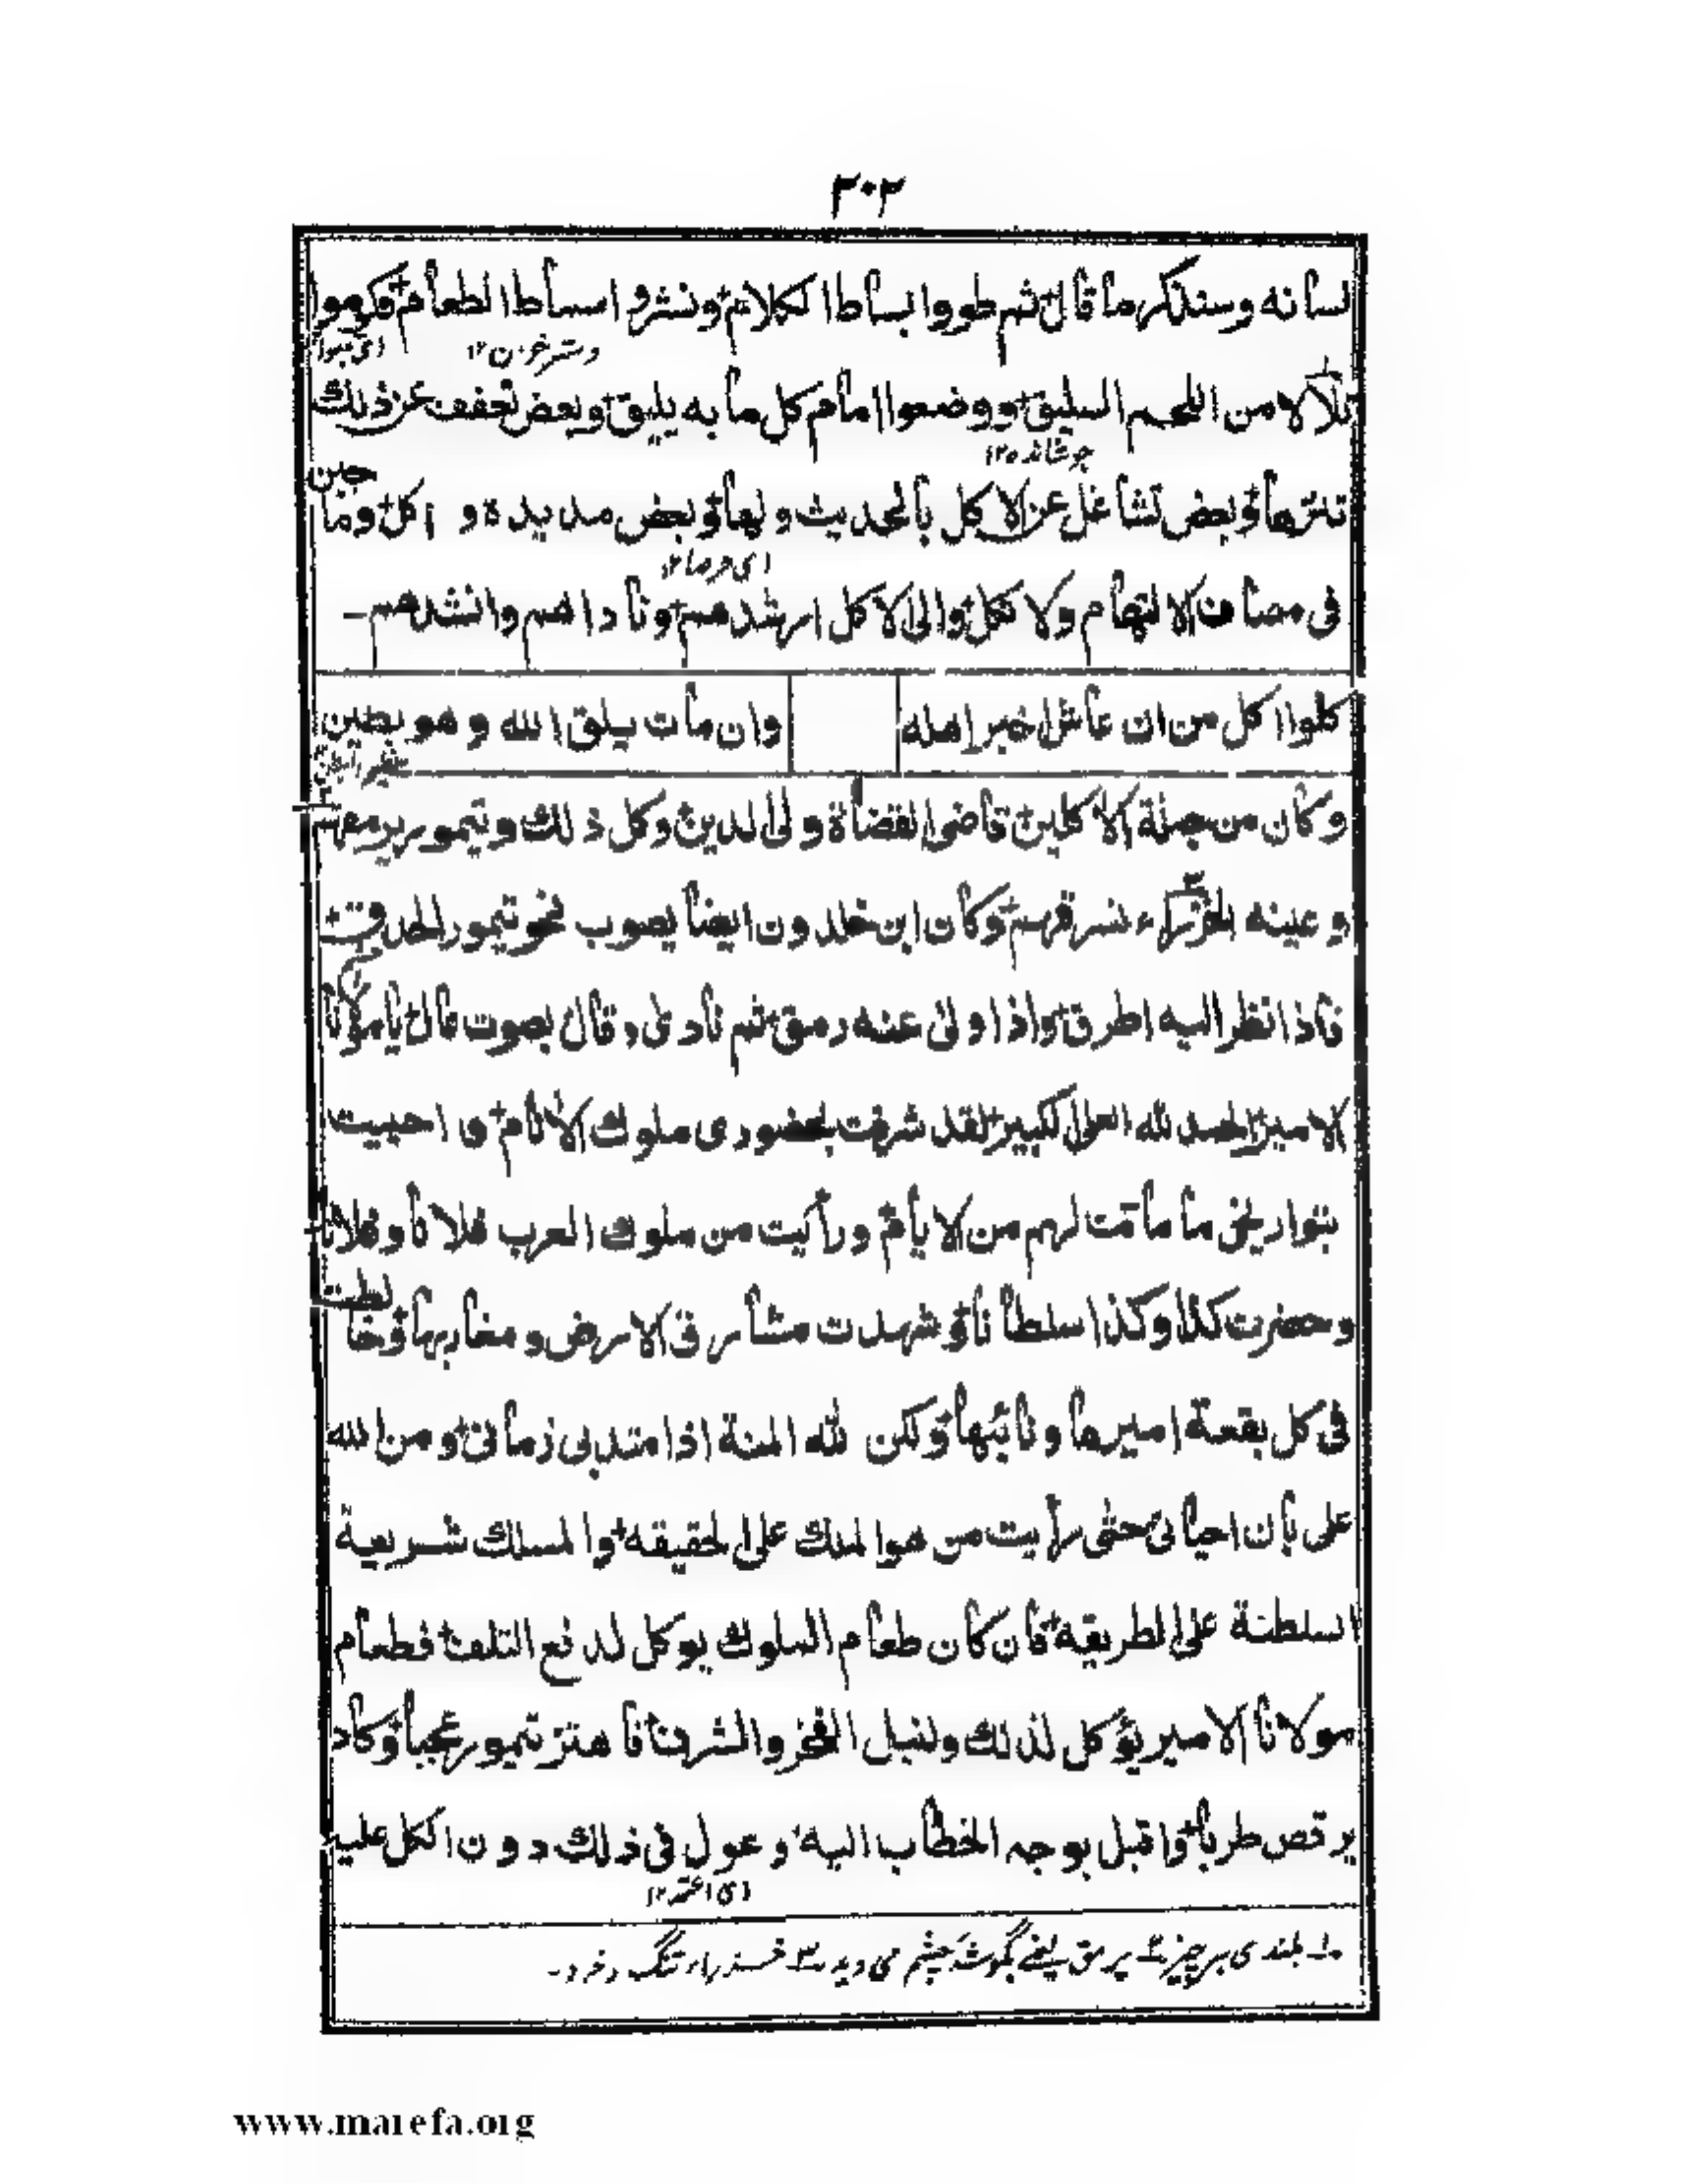 ٣٠٢
لسانه وسنذكر ما قال ثم طووا بساط الكلام ونشروا سماط الطعام فكوموا
تلالا من اللحم السليق ووضعوا امام كل ما به يليق وبعض تعفف عن ذلك
تنزها وبعض تشاغل عن الاكل بالحديث ولها وبعض مد يده و اكل وما جبن
فى مصاف الالتهام ولا نكل والى الاكل ارشدهم وناداهم وانشدهم ـ
كلوا اكل من ان عاش اخبر اهله وان مات يلق الله وهو بطين
وكان من جملة الاكلين قاضى القضاة ولى الدين وكل ذلك وتيمور يرمقهم
وعينه الخزراء تسرقهم وكان ابن خلدون ايضا يصوب نحو تيمور الحدق
فاذا نظر اليه اطرق واذا ولى عنه رمق ثم نادى وقال بصوت عال يا مولانا
الامير الحمد لله العلى الكبير لقد شرفت بحضورى ملوك الانام و احييت
بتواريخى ما ماتت لهم من الايام ورأيت من ملوك العرب فلانا وفلانا
وحضرت كذا وكذا سلطانا وشهدت مشارق الارض ومغاربها وخالطت
فى كل بقعة اميرها ونائبها ولكن لله المنة اذ امتد بى زمانى ومن الله
على بان احيانى حتى رأيت من هو الملك على الحقيقه والمسلك شريعة
السلطنة على الطريقه فان كان طعام الملوك يوكل لدفع التلف فطعام
مولانا الامير يؤكل لذلك ولنيل الفخر والشرف فاهتز تيمور عجبا وكاد
يرقص طربا واقبل بوجه الخطاب اليه وعول فى ذلك دون الكل عليه
اى اعتمد ١٢
www.marefa.org